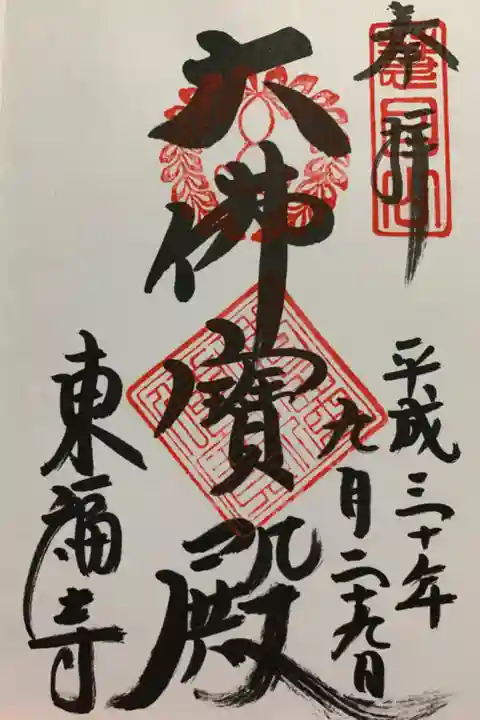 奉拝
平成三十年
九月二十九日
大佛寶殿
東福寺